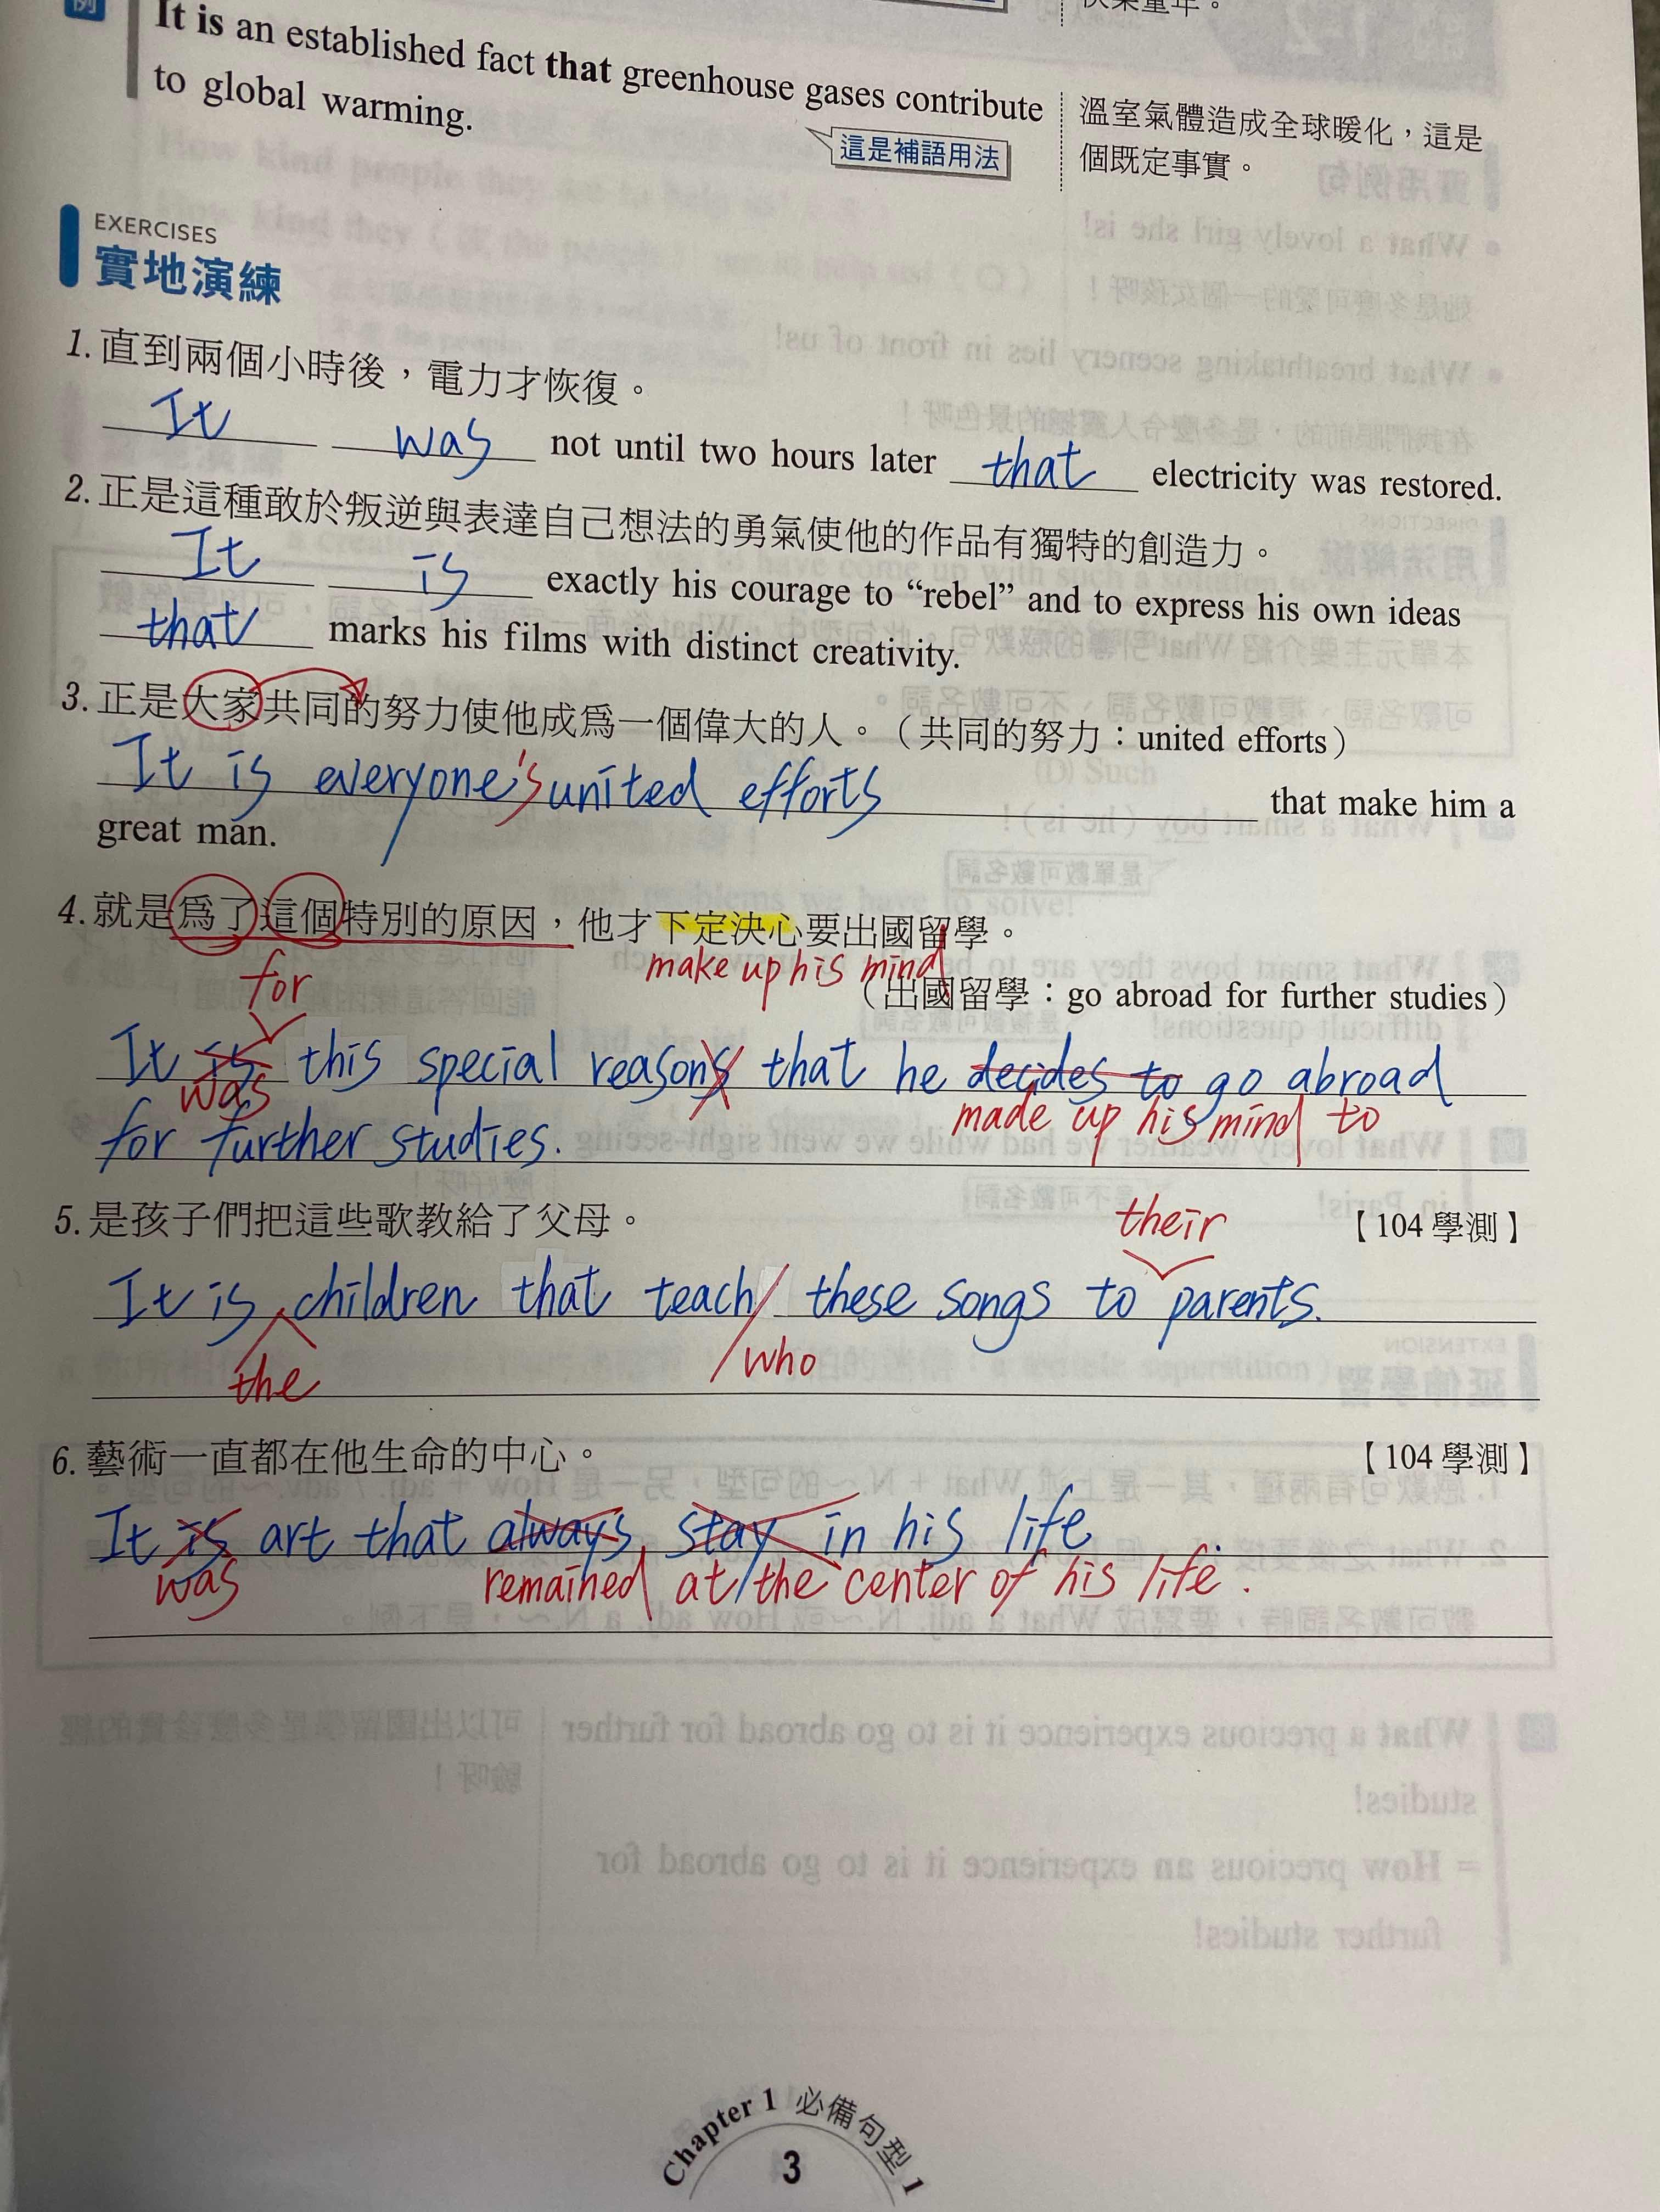 例
It is an established fact that greenhouse gases contribute
to global warming.
這是補語用法
溫室氣體造成全球暖化，這是
個既定事實。
EXERCISES
實地演練
1. 直到兩個小時後，電力才恢復。
It was not until two hours later that electricity was restored.
2. 正是這種敢於叛逆與表達自己想法的勇氣使他的作品有獨特的創造力。
It is exactly his courage to “rebel” and to express his own ideas
that marks his films with distinct creativity.
3. 正是大家共同的努力使他成為一個偉大的人。（共同的努力：united efforts）
It is everyone's united efforts that make him a
great man.
4. 就是為了這個特別的原因，他才下定決心要出國留學。
for make up his mind
（出國留學：go abroad for further studies）
It is this special reasons that he decides to go abroad
was made up his mind to
for further studies.
5. 是孩子們把這些歌教給了父母。 【104 學測】
their
It is children that teach these songs to parents.
the who
6. 藝術一直都在他生命的中心。 【104 學測】
It is art that always stay in his life.
was remained at the center of his life.
Chapter 1 必備句型 1
3